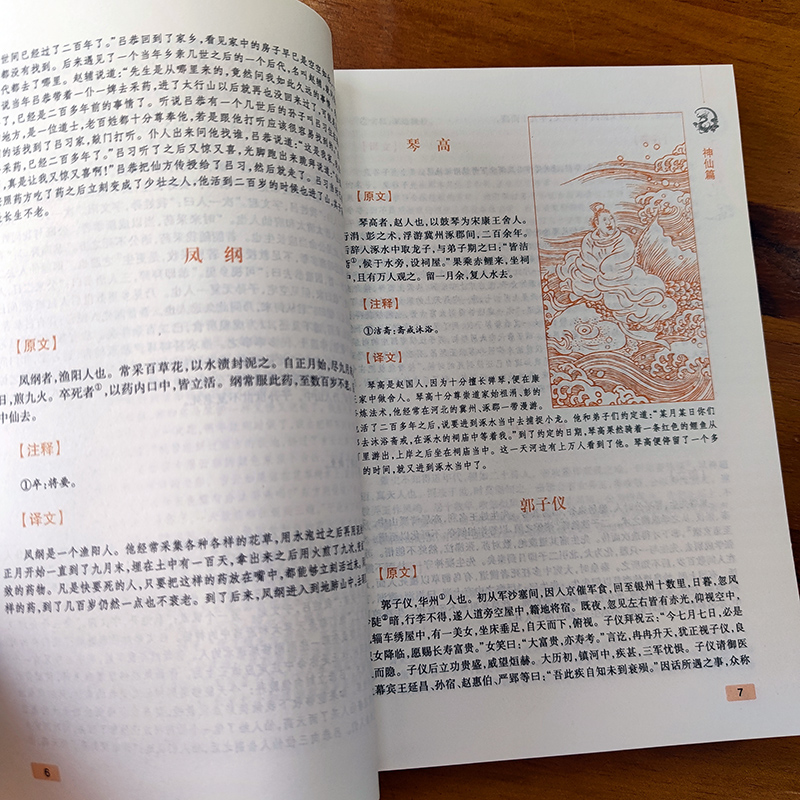 世间已经过了二百年了。”吕恭回到了家乡，看见家中的房子早已是空空如
都没有找到。后来遇见了一个当年乡亲几世之后的一个后代，名叫赵辅，
代都去了哪里。赵辅说道：“先生是从哪里来的，竟然问我如此久远的事情？
说当年吕恭带着一仆一婢去采药，进了太行山以后就再也没回来过了，
了，已经是二百多年前的事情了。听说吕恭有一个几世后的孙子叫吕习，
地方，是一位道士，老百姓都十分尊奉他，若是跟他打听应该很容易找到的
的话找到了吕习家，敲门打听。仆人出来问他找谁，吕恭说道：“这是我家，
采药，已经二百多年了。”吕习听了之后又惊又喜，光脚跑出来跪拜说道：
，真是让我又惊又喜啊！”吕恭把仙方传授给了吕习，然后就走了。吕习
照药方吃了药之后立刻变成了少壮之人，他活到二百岁的时候也进了山，
长生不老。
凤纲
【原文】
凤纲者，渔阳人也。常采百草花，以水渍封泥之。自正月始，尽九月
日，煎九火。卒死者①，以药内口中，皆立活。纲常服此药，至数百岁不老
中仙去。
【注释】
①卒：将要。
【译文】
凤纲是一个渔阳人。他经常采集各种各样的花草，用水泡过之后再用
正月开始一直到了九月末，埋在土中有一百天，拿出来之后用火煎了九次，
效的药物。凡是快要死的人，只要把这样的药放在嘴中，都能够立刻活过来。
样的药，到了几百岁仍然一点也不衰老。到了后来，凤纲进入到地肺山中，
6
神仙篇
琴高
【原文】
琴高者，赵人也，以鼓琴为宋康王舍人。
行涓、彭之术，浮游冀州涿郡间，二百余年。
后辞入涿水中取龙子，与弟子期之曰：“皆洁
斋①，候于水旁，设祠屋。”果乘赤鲤来，坐祠
中，且有万人观之。留一月余，复入水去。
【注释】
①洁斋：斋戒沐浴。
【译文】
琴高是赵国人，因为十分擅长弹琴，便在康
家中做舍人。琴高十分尊崇道家始祖涓、彭的
炼法术，他经常在河北的冀州、涿郡一带漫游。
活了二百多年之后，说要进到涿水当中去捕捉小龙。他和弟子们约定道：“某月某日你们
去沐浴斋戒，在涿水的祠庙中等着我。”到了约定的日期，琴高果然骑着一条红色的鲤鱼从
里游出，上岸之后坐在祠庙当中。这一天河边有上万人看到了他。琴高便停留了一个多
的时间，就又进到涿水当中了。
郭子仪
【原文】
郭子仪，华州①人也。初从军沙塞间，因入京催军食，回至银州十数里，日暮，忽风
沙陡②暗，行李不得，遂入道旁空屋中，籍地将宿。既夜，忽见左右皆有赤光，仰视空中，
辎车绣屋中，有一美女，坐床垂足，自天而下，俯视。子仪拜祝云：“今七月七日，必是
女降临，愿赐长寿富贵。”女笑曰：“大富贵，亦寿考。”言讫，冉冉升天，犹正视子仪，良
而隐。子仪后立功贵盛，威望烜赫。大历初，镇河中，疾甚，三军忧惧。子仪请御医
幕宾王延昌、孙宿、赵惠伯、严郢等曰：“吾此疾自知未到衰殒。”因话所遇之事，众称
7